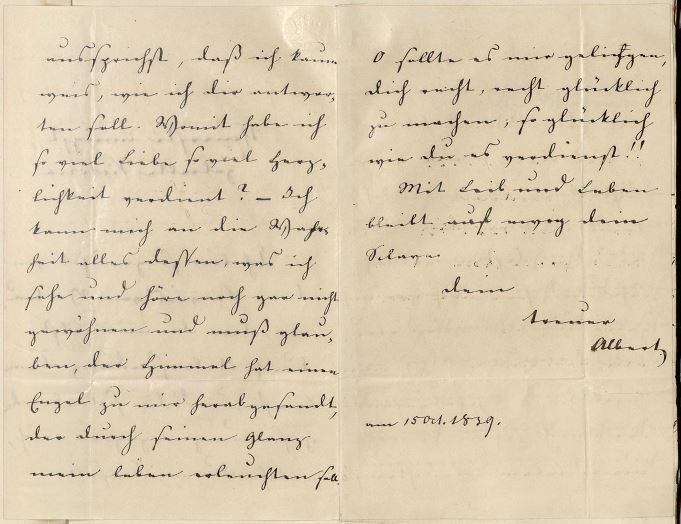 aussprichst, daß ich kaum
weis, wie ich dir antwor-
ten soll. Womit habe ich
so viel Liebe so viel Herz-
lichkeit verdient? – Ich
kann mich an die Wahr-
heit alles dessen, was ich
sehe und höre noch gar nicht
gewöhnen und muß glau-
ben, der Himmel hat einen
Engel zu mir herabgesandt,
der durch seinen Glanz
mein leben erleuchten soll.
O sollte es mir gelingen,
dich recht, recht glücklich
zu machen, so glücklich
wie du es verdienst!!
Mit Leib und Leben
bleibt auf ewig dein
Sclave
dein
treuer
Albert
am 15 Oct. 1839.